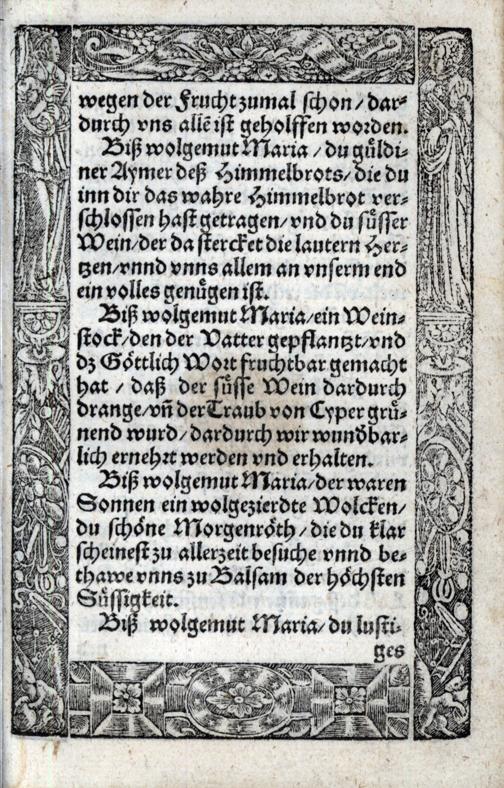 wegen der Frucht zumal schon / dar-
durch vns allē ist geholffen worden.
Biß wolgemut Maria / du güldi-
ner Aymer deß Himmelbrots / die du
inn dir das wahre Himmelbrot ver-
schlossen hast getragen / vnd du süsser
Wein / der da stercket die lautern Her-
tzen / vnnd vnns allem an vnserm end
ein volles genügen ist.
Biß wolgemut Maria / ein Wein-
stock / den der Vatter gepflantzt / vnd
dz Göttlich Wort fruchtbar gemacht
hat / daß der süsse Wein dardurch
drange / vñ der Traub von Cyper grü-
nend wurd / dardurch wir wundbar-
lich ernehrt werden vnd erhalten.
Biß wolgemut Maria / der waren
Sonnen ein wolgezierdte Wolcken /
du schöne Morgenröth / die du klar
scheinest zu allerzeit besuche vnnd be-
thawe vnns zu Balsam der höchsten
Süssigkeit.
Biß wolgemut Maria / du lusti-
ges